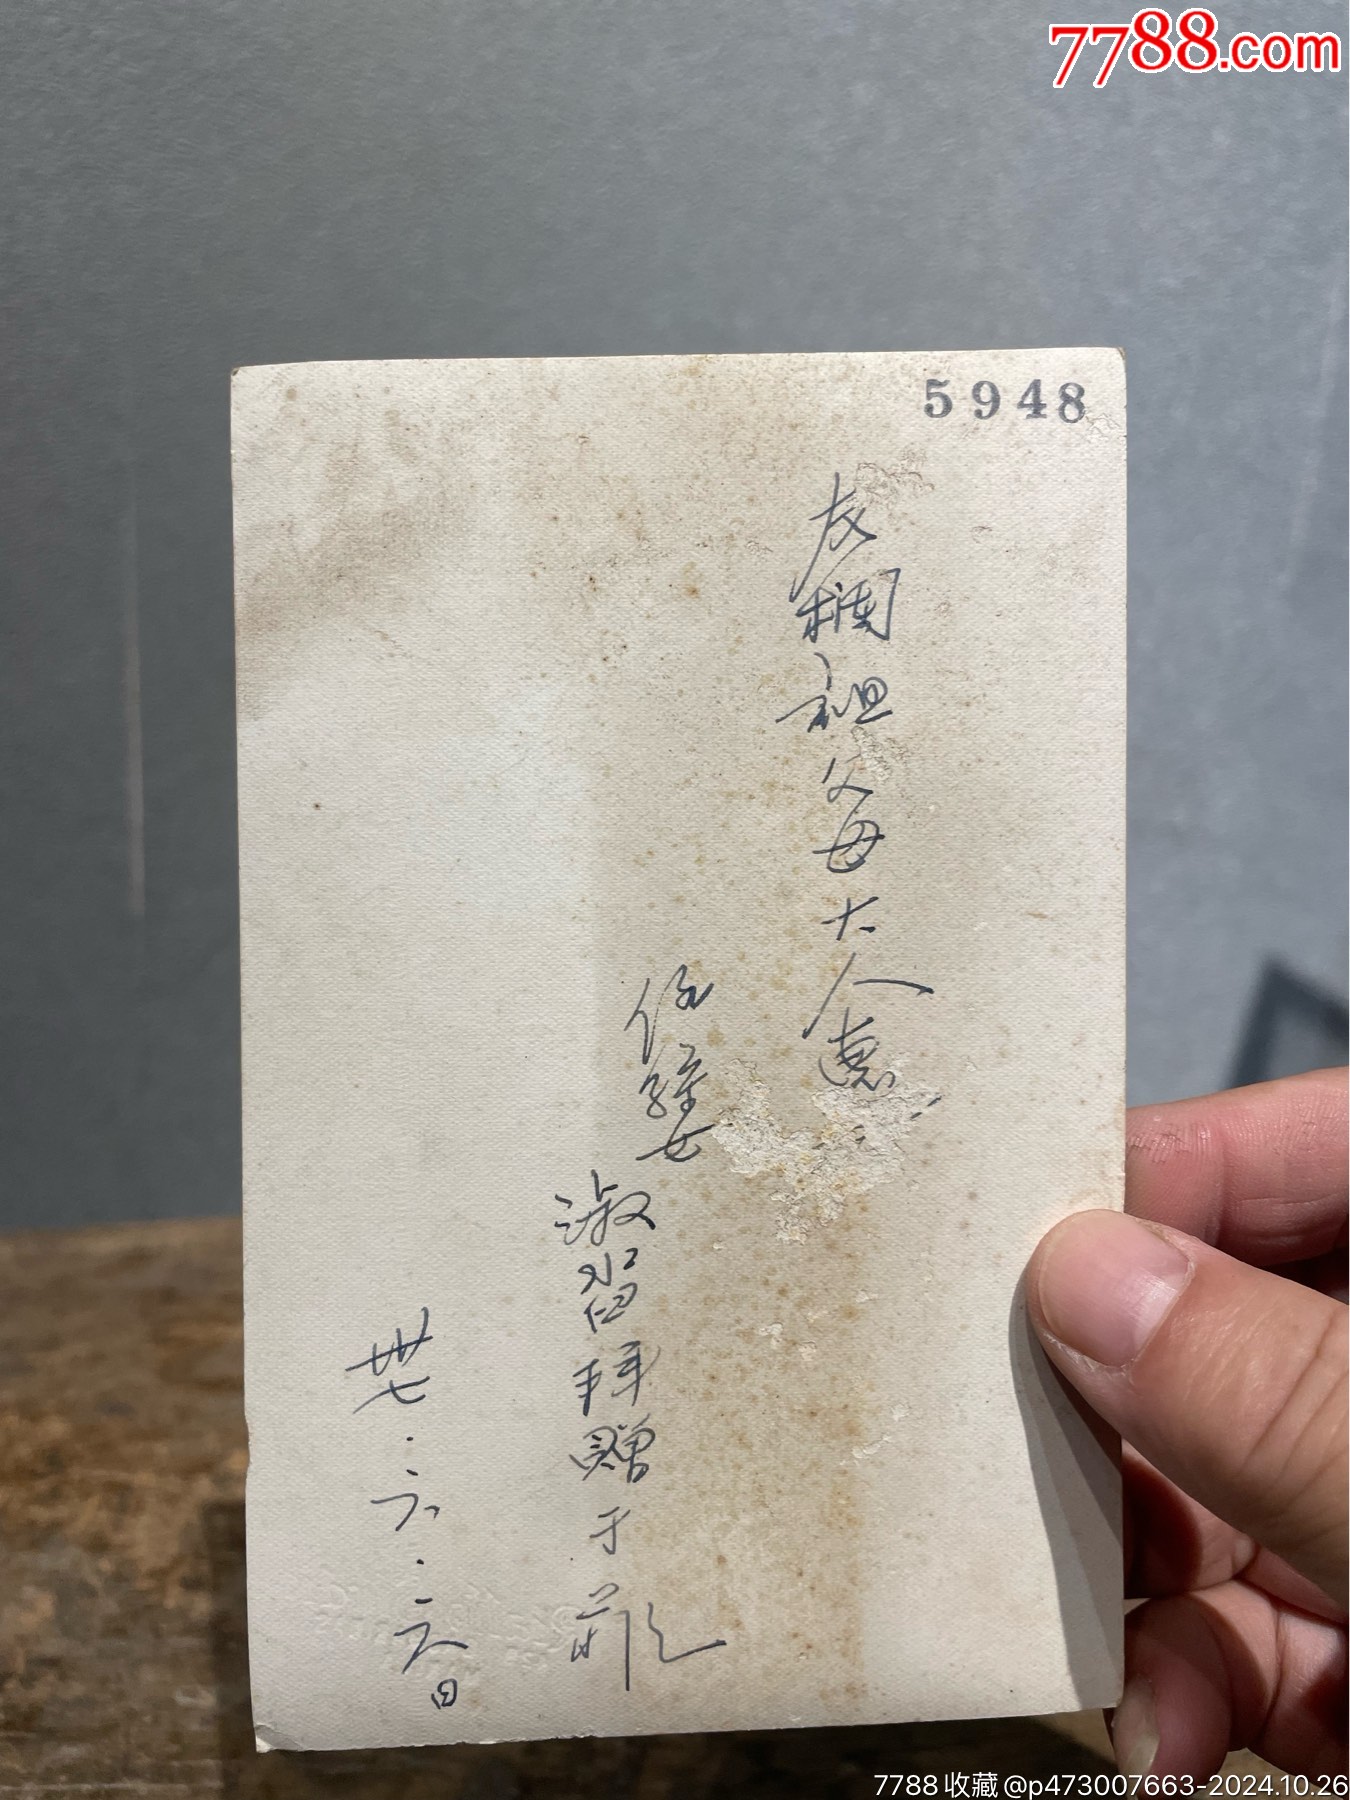 7788.com
5948
友欄祖父母大人惠
侄孫女
淑習拜贈于
卅七.六.六日
7788收藏@p473007663-2024.10.26